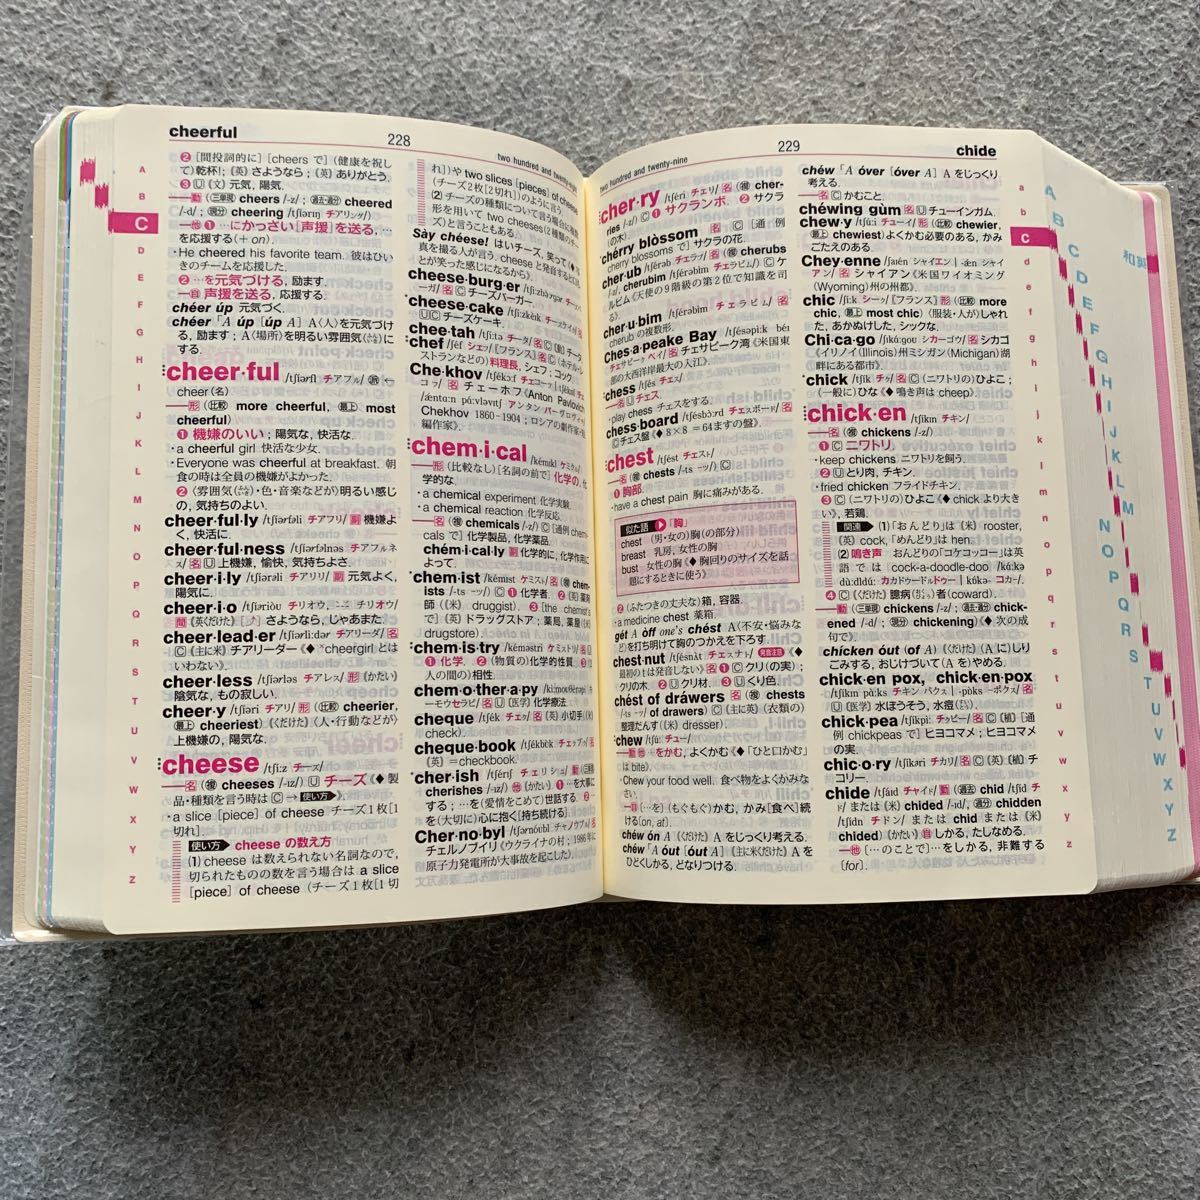 cheerful
228
two hundred and twenty-eight
❷ [間投詞的に] [cheers で] (健康を祝し
て)乾杯!; (英) さようなら; (英) ありがとう.
❸ Ⓤ (文) 元気, 陽気.
── 動 (三単現) cheers /-z/; (過去・過分) cheered
/-d/; (現分) cheering /tʃíəriŋ チアリング/)
─他 ❶ …にかっさい[声援]を送る, …
を応援する(+ on).
・He cheered his favorite team. 彼はひい
きのチームを応援した.
❷ …を元気づける, 励ます.
─自 声援を送る, 応援する.
chéer úp 元気づく.
chéer 「A úp [úp A] A(人)を元気づけ
る, 励ます; A(場所)を明るい雰囲気にす
る.
cheer·ful /tʃíərfl チアフル/ (派←
cheer(名))
── 形 (比較 more cheerful, 最上 most
cheerful)
❶ 機嫌のいい; 陽気な, 快活な.
・a cheerful girl 快活な少女.
・Everyone was cheerful at breakfast. 朝
食の時は全員の機嫌がよかった.
❷ (雰囲気・色・音楽などが)明るい感じ
の, 気持ちのよい.
cheer·ful·ly /tʃíərfəli チアフリ/ 副 機嫌よ
く, 快活に.
cheer·ful·ness /tʃíərfəlnəs チアフルネ
ス/ 名 Ⓤ 上機嫌, 愉快, 気持ちよさ.
cheer·i·ly /tʃíərəli チアリリ/ 副 元気よく,
陽気に.
cheer·i·o /tʃìərióu チリオウ, ニニ チリオウ/
間 (英くだけて) さようなら, じゃあまた.
cheer·lead·er /tʃíərlìːdər チアリーダ/ 名
Ⓒ (主に米) チアリーダー(♦cheergirl とは
いわない).
cheer·less /tʃíərləs チアレス/ 形 (かたい)
陰気な, もの寂しい.
cheer·y /tʃíəri チアリ/ 形 (比較 cheerier,
最上 cheeriest) (くだけて) (人・行動などが)
上機嫌の, 陽気な.
cheese /tʃíːz チーズ/
── 名 (複 cheeses /-iz/) Ⓤ チーズ(♦製
品・種類を言う時は Ⓒ → 使い方).
・a slice [piece] of cheese チーズ1枚[1
切れ].
使い方 cheese の数え方
(1) cheese は数えられない名詞なので,
切られたものの数を言う場合は a slice
[piece] of cheese (チーズ1枚[1切
れ])や two slices [pieces] of cheese
(チーズ2枚[2切れ])のように言う.
(2) チーズの種類について言う場合は複数
形を用いて two cheeses(2種類のチー
ズ)と言うこともある.
Sày chéese! はいチーズ, 笑って(♦写
真を撮る人が言う. cheese と発音すると口
もとが笑った感じになるから).
cheese·burg·er /tʃíːzbə̀ːrgər チーズバ
ーガ/ 名 Ⓒ チーズバーガー.
cheese·cake /tʃíːzkèik チーズケイク/ 名
ⓊⒸ チーズケーキ.
chee·tah /tʃíːtə チータ/ 名 Ⓒ (動) チータ.
chef /ʃéf シェフ/ [フランス] 名 Ⓒ (ホテル・レ
ストランなどの)料理長, シェフ; コック.
Che·khov /tʃékɔːf チェコーフ | tʃékɔf
コフ/ 名 チェーホフ(Anton Pavlovich
Chekhov 1860-1904; ロシアの劇作家・短
編作家).
chem·i·cal /kémikl ケミクル/
── 形 (比較なし) [名詞の前で] 化学の, 化
学的な.
・a chemical experiment 化学実験.
・a chemical reaction 化学反応.
── 名 (複 chemicals /-z/) Ⓒ [通例 chemi-
cals で] 化学製品, 化学薬品.
chém·i·cal·ly 副 化学的に, 化学作用に
よって.
chem·ist /kémist ケミスト/ 名 (複 chem-
ists /-ts -ツ/) Ⓒ ❶ 化学者. ❷ (英) 薬剤
師((米) druggist). ❸ [the chemist's
で] (英) ドラッグストア; 薬局, 薬屋((米)
drugstore).
chem·is·try /kéməstri ケミストリ/ 名
Ⓤ ❶ 化学. ❷ (物質の)化学的性質. ❸
人の間の) 相性.
chem·o·ther·a·py /kìːmouθérəpi
ーモウセラピ/ 名 Ⓤ (医学) 化学療法.
cheque /tʃék チェック/ 名 Ⓒ (英) 小切手((米)
check).
cheque·book /tʃékbùk チェックブック/ 名 Ⓒ
(英) =checkbook.
cher·ish /tʃériʃ チェリシュ/ 動 (三単現
cherishes /-iz/) 他 (かたい) ❶ …を大事に
する; …を(愛情をこめて)世話する. ❷ …
を(大切に)心に抱く[持ち続ける].
Cher·no·byl /tʃərnóubl チャノウブル/ 名
チェルノブイリ(ウクライナの村; 1986年
原子力発電所が大事故を起こした).
two hundred and twenty-nine
229
chide
cher·ry /tʃéri チェリ/ 名 (複 cher-
ries /-z/) Ⓒ ❶ サクランボ. ❷ サクラ
(の木).
chérry blòssom 名 Ⓒ [通例
cherry blossoms で] サクラの花.
cher·ub /tʃérəb チェラブ/ 名 (複 cherubs
/-z/, cherubim /tʃérəbim チェラビム/) Ⓒ ケ
ルビム(天使の9階級の第2位で知識を司
る).
cher·u·bim /tʃérəbim チェラビム/ 名
cherub の複数形.
Ches·a·peake Bay /tʃésəpìːk béi
チェサピーク ベイ/ 名 チェサピーク湾(米国東
部の大西洋岸最大の入江).
chess /tʃés チェス/
── 名 Ⓤ チェス.
・play chess チェスをする.
chess·board /tʃésbɔ̀ːrd チェスボード/ 名
Ⓒ チェス盤(♦8×8＝64ますの盤).
chest /tʃést チェスト/
── 名 (複 chests /-ts -ツ/) Ⓒ
❶ 胸部.
・have a chest pain 胸に痛みがある.
似た語 ▶ 「胸」
chest (男・女の)胸(の部分)
breast 乳房, 女性の胸
bust 女性の胸(♦胸回りのサイズを話
題にするときに使う)
❷ (ふたつきの丈夫な)箱, 容器.
・a medicine chest 薬箱.
gét A òff one's chést A(不安・悩みな
ど)を打ち明けて胸のつかえを下ろす.
chest·nut /tʃésnʌ̀t チェスナト/ (発音注意)♦
最初の t は発音しない) 名 ❶ Ⓒ クリ(の実);
クリの木. ❷ Ⓤ クリ材. ❸ Ⓤ くり色.
chést of dráwers 名 (複 chests
/-ts -ツ/ of drawers) Ⓒ (主に英) (衣類の)
整理だんす((米) dresser).
chew /tʃúː チュー/
── 動 他 …をかむ, よくかむ(♦「ひと口かむ」
は bite).
・Chew your food well. 食べ物をよくかみな
さい.
─自 […を](もぐもぐ)かむ, かみ[食べ]続
ける(on, at).
chéw ón A (くだけて) A をじっくり考える.
chéw 「A óut [óut A] (主に米くだけて) A を
ひどくしかる, どなりつける.
chéw 「A óver [óver A] A をじっくり
考える.
── 名 Ⓒ かむこと.
chéwing gùm 名 Ⓤ チューインガム.
chew·y /tʃúːi チューイ/ 形 (比較 chewier,
最上 chewiest) よくかむ必要のある, かみ
ごたえのある.
Chey·enne /ʃaién シャイエン | -ǽn シャイ
アン/ 名 シャイアン(米国ワイオミング
(Wyoming)州の州都).
chic /ʃíːk シーク/ [フランス] 形 (比較 more
chic, 最上 most chic) (服装・人が)しゃれ
た, あかぬけした, シックな.
Chi·ca·go /ʃikɑ́ːgou シカーゴウ/ 名 シカゴ
(イリノイ(Illinois)州ミシガン(Michigan)湖
畔にある都市).
chick /tʃík チク/ 名 Ⓒ (ニワトリの)ひよこ;
(一般に)ひな(♦鳴き声は cheep).
chick·en /tʃíkin チキン/
── 名 (複 chickens /-z/)
❶ Ⓒ ニワトリ.
・keep chickens ニワトリを飼う.
❷ Ⓤ とり肉, チキン.
・fried chicken フライドチキン.
❸ Ⓒ (ニワトリの)ひよこ(♦chick より大き
い), 若鶏.
関連 ▶ (1) 「おんどり」は(米) rooster,
(英) cock, 「めんどり」は hen.
(2) 鳴き声 おんどりの「コケコッコー」は英
語では cock-a-doodle-doo /kɑ́kə-
dùːdldúː カカドゥードルドゥー | kɔ́kə- コカ-/.
❹ Ⓒ (くだけて) 臆病者(coward).
── 動 (三単現) chickens /-z/; (過去・過分) chick-
ened /-d/; (現分) chickening) (♦次の成
句で).
chícken óut (of A) (くだけて) (A に)しり
ごみする, おじけづいて(A を)やめる.
chick·en pox, chick·en·pox
/tʃíkin pɑ̀ːks チキン パクス | -pɔ̀ks -ポクス/ 名
Ⓤ (医学) 水ぼうそう, 水痘.
chick·pea /tʃíkpìː チクピー/ 名 Ⓒ (植) [通
例 chickpeas で] ヒヨコマメ; ヒヨコマメ
の実.
chic·o·ry /tʃíkəri チカリ/ 名 Ⓒ (英) (植) チ
コリー.
chide /tʃáid チャイド/ 動 (過去 chid /tʃíd チ
ド/ または (米) chided /-id/, 過分 chidden
/tʃídn チドン/ または chid または (米)
chided) (かたい) 自 しかる, たしなめる.
─他 […のことで]…をしかる, 非難する
[for].
A
B
C
D
E
F
G
H
I
J
K
L
M
N
O
P
Q
R
S
T
U
V
W
X
Y
Z
a
b
C
d
e
f
g
h
i
j
k
l
m
n
o
p
q
r
s
t
u
v
w
x
y
z
和英
A
B
C
D
E
F
G
H
I
J
K
L
M
N
O
P
Q
R
S
T
U
V
W
X
Y
Z